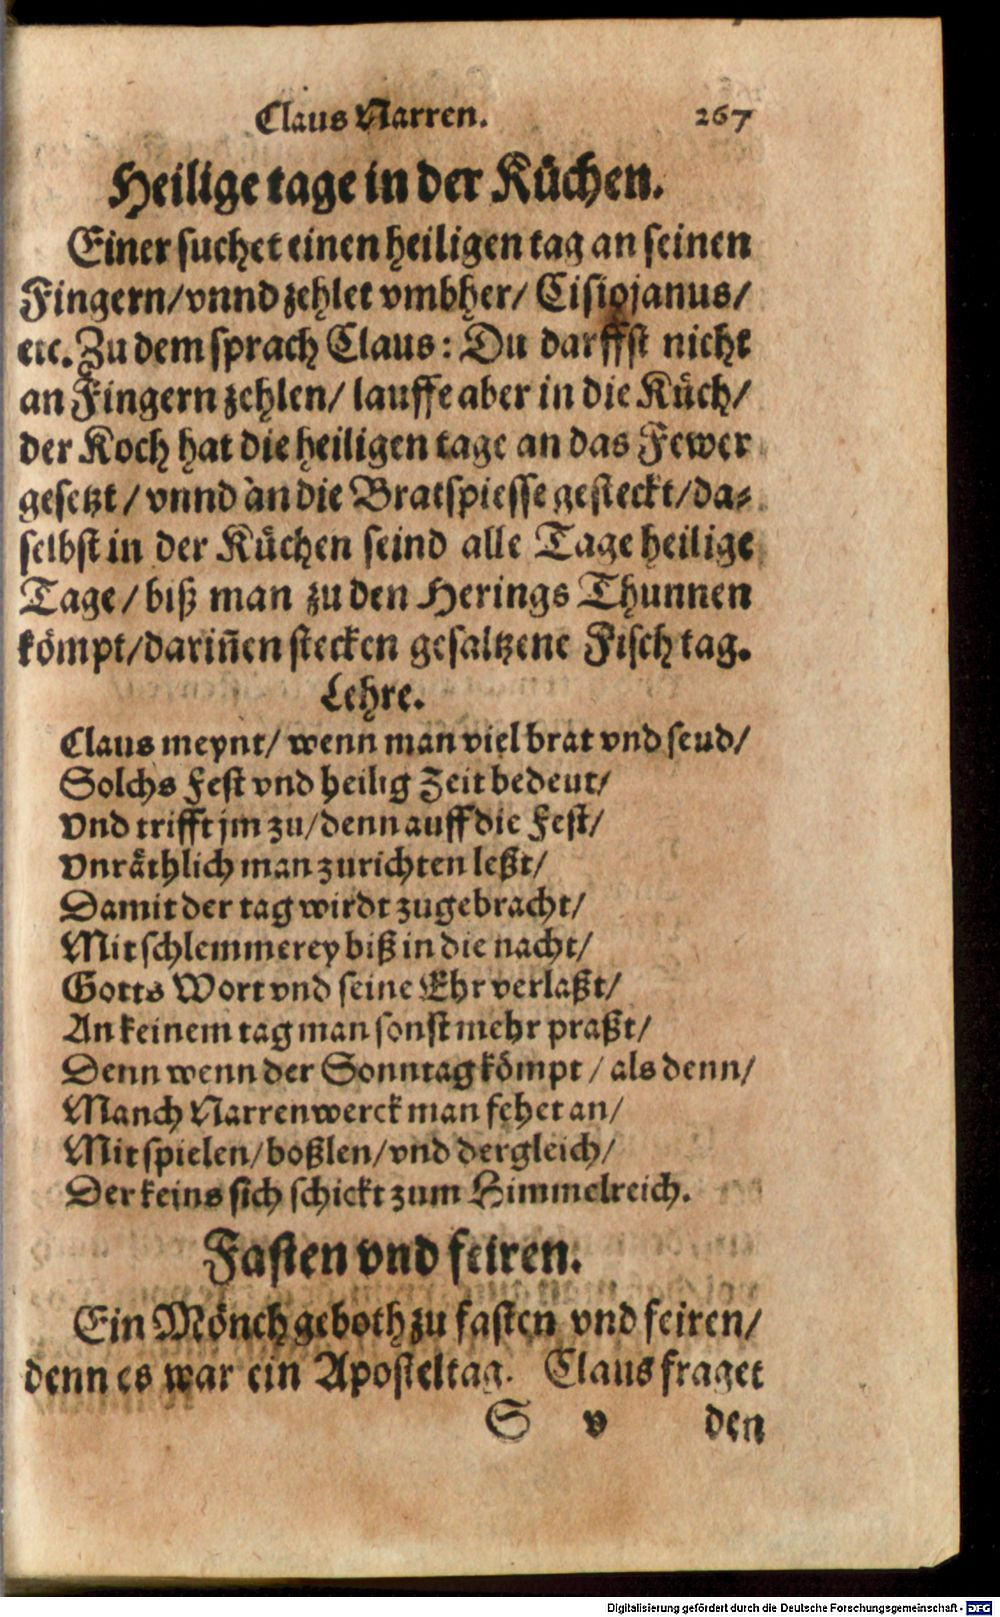 Claus Narren. 267
Heilige tage in der Küchen.
Einer suchet einen heiligen tag an seinen
Fingern/vnnd zehlet vmbher/ Cisiojanus/
etc. Zu dem sprach Claus: Du darffst nicht
an Fingern zehlen/ lauffe aber in die Küch/
der Koch hat die heiligen tage an das Fewer
gesetzt/ vnnd an die Bratspiesse gesteckt/da-
selbst in der Küchen seind alle Tage heilige
Tage/ biß man zu den Herings Thunnen
kömpt/darin̄en stecken gesaltzene Fischtag.
Lehre.
Claus meynt/ wenn man viel brat vnd seud/
Solchs Fest vnd heilig Zeit bedeut/
Vnd trifft jm zu/denn auff die Fest/
Vnräthlich man zurichten leßt/
Damit der tag wirdt zugebracht/
Mit schlemmerey biß in die nacht/
Gotts Wort vnd seine Ehr verlaßt/
An keinem tag man sonst mehr praßt/
Denn wenn der Sonntag kömpt / als denn/
Manch Narrenwerck man fehet an/
Mit spielen/boßlen/vnd dergleich/
Der keins sich schickt zum Himmelreich.
Fasten vnd feiren.
Ein Mönch geboth zu fasten vnd feiren/
denn es war ein Aposteltag. Claus fraget
S v den
Digitalisierung gefördert durch die Deutsche Forschungsgemeinschaft - DFG